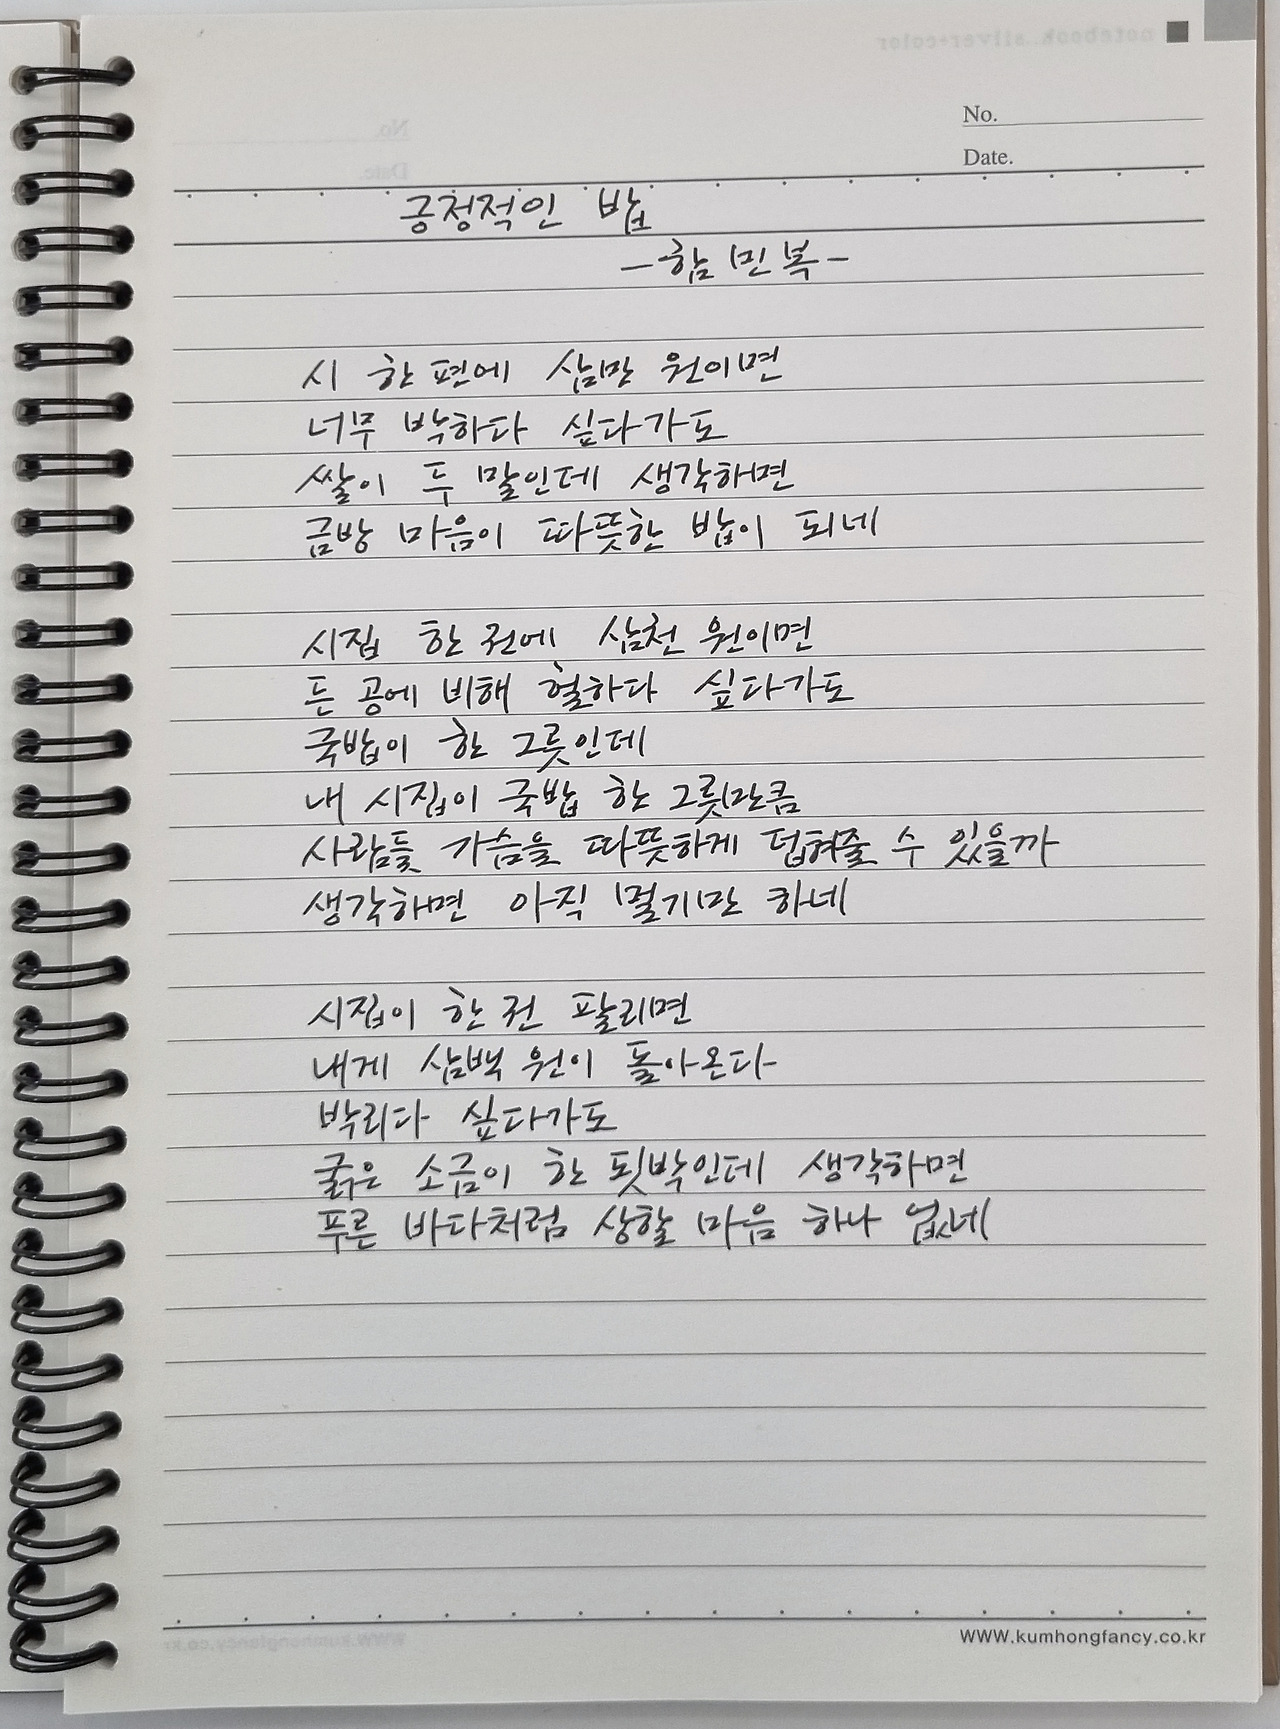 notebook.silver+color
No.
Date.
긍정적인 밥
-함민복-
시 한 편에 삼만 원이면
너무 박하다 싶다가도
쌀이 두 말인데 생각하면
금방 마음이 따뜻한 밥이 되네
시집 한 권에 삼천 원이면
든 공에 비해 헐하다 싶다가도
국밥이 한 그릇인데
내 시집이 국밥 한 그릇만큼
사람들 가슴을 따뜻하게 덥혀줄 수 있을까
생각하면 아직 멀기만 하네
시집이 한 권 팔리면
내게 삼백 원이 돌아온다
박리다 싶다가도
굵은 소금이 한 됫박인데 생각하면
푸른 바다처럼 상할 마음 하나 없네
WWW.kumhongfancy.co.kr